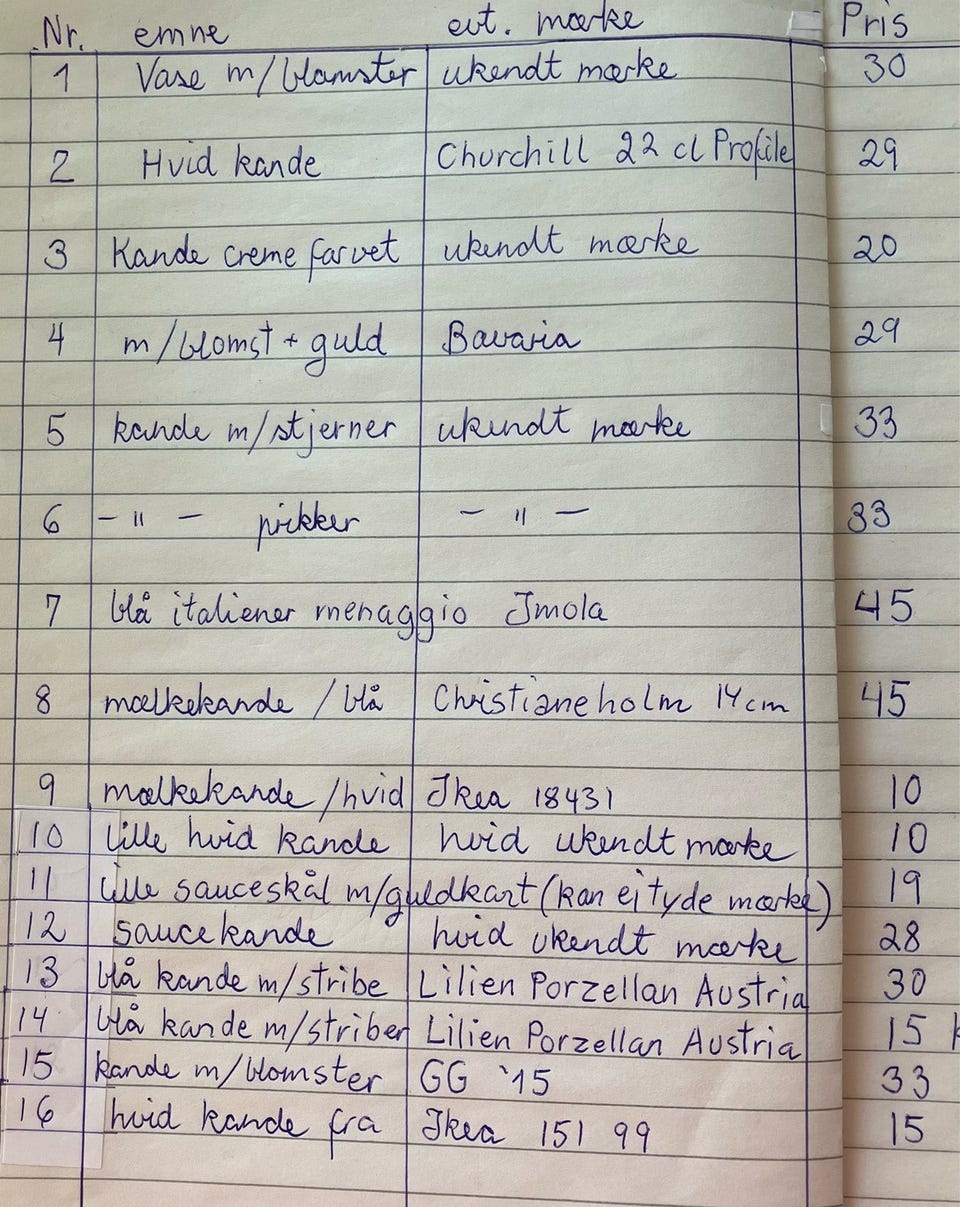 Nr. emne evt. mærke Pris
1 Vase m/blomster ukendt mærke 30
2 Hvid kande Churchill 22 cl Profile 29
3 Kande creme farvet ukendt mærke 20
4 m/blomst + guld Bavaria 29
5 kande m/stjerner ukendt mærke 33
6 - " - prikker - " - 33
7 blå italiener menaggio Imola 45
8 mælkekande / blå Christianeholm 14 cm 45
9 mælkekande /hvid Ikea 18431 10
10 lille hvid kande hvid ukendt mærke 10
11 lille sauceskål m/guldkant (kan ej tyde mærke) 19
12 saucekande hvid ukendt mærke 28
13 blå kande m/stribe Lilien Porzellan Austria 30
14 blå kande m/striber Lilien Porzellan Austria 15 k
15 kande m/blomster GG '15 33
16 hvid kande fra Ikea 151 99 15